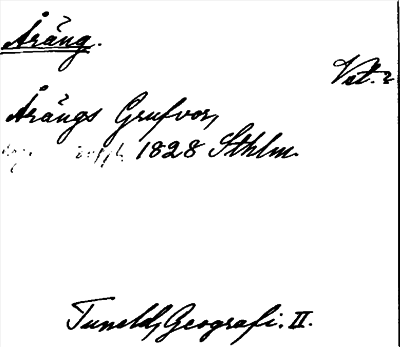 Åräng.
Vet. 2
Årängs Grufvor,
1828 Sthlm.
Tuneld, Geografi. II.